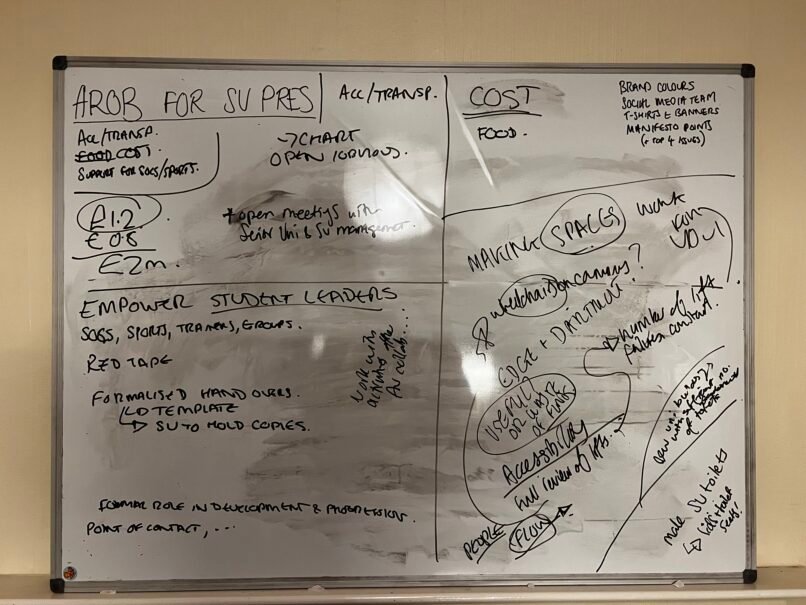 AROB FOR SU PRES
ACC/TRANSP.
FOOD COST.
SUPPORT FOR SOCS/SPORTS.
£1.2
£0.8
£2m.
ACC/TRANSP.
→ CHART
OPEN
* open meetings with
Uni & SU management.
EMPOWER STUDENT LEADERS
SOCS, SPORTS, TRAINERS, GROUPS.
RED TAPE
FORMALISED HAND OVERS.
↳ TEMPLATE
↳ SU TO HOLD COPIES.
work with
activities
AU collab....
FORMAL ROLE IN DEVELOPMENT & PROGRESSION.
POINT OF CONTACT, ...
COST
FOOD.
BRAND COLOURS
SOCIAL MEDIA TEAM
T-SHIRTS & BANNERS
MANIFESTO POINTS
(+ TOP 4 ISSUES)
MAKING SPACES WORK
wheelchairs on campus?
EDGE +
→ number of lift
failures constant.
USEFUL
OR WASTE
OF
Accessibility
full review of
PEOPLE FLOW →
new uni buildings
with
of
male SU toilets
↳ toilet
seats!